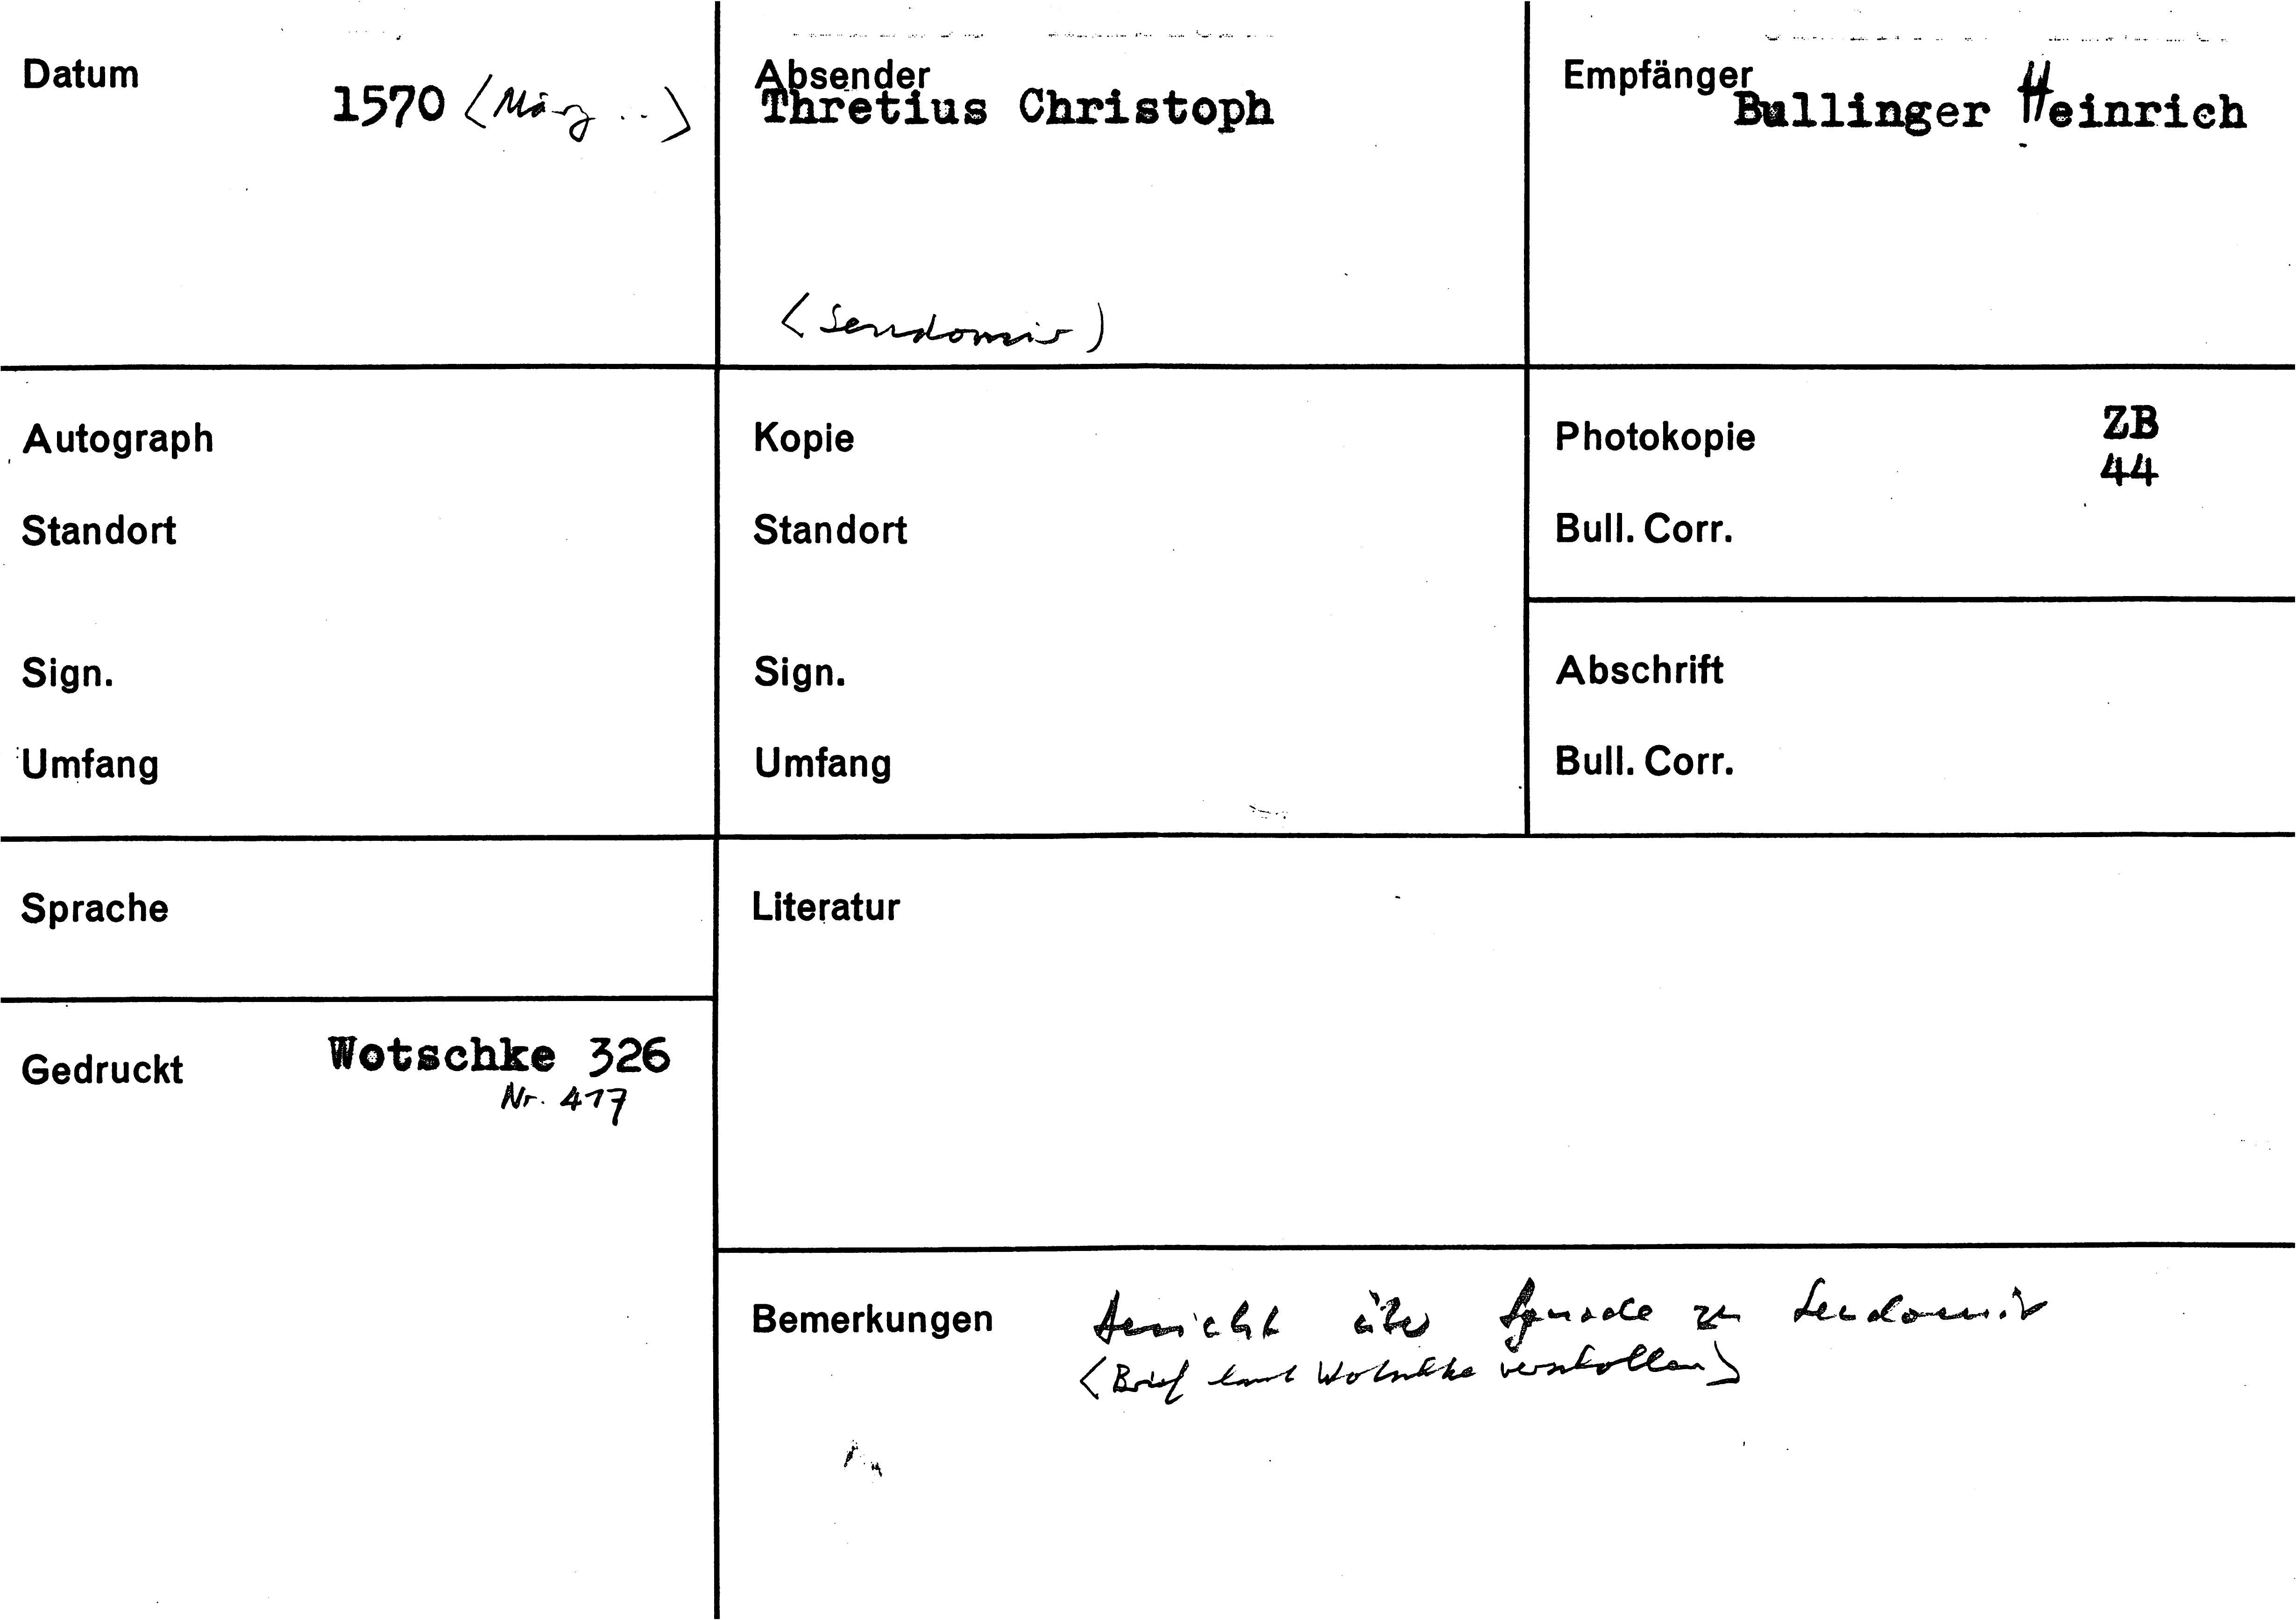 Datum
1570 <März ..>
Absender
Thretius Christoph
<Sendomir)
Empfänger
Bullinger Heinrich
Autograph
Standort
Sign.
Umfang
Kopie
Standort
Sign.
Umfang
Photokopie ZB
44
Bull. Corr.
Abschrift
Bull. Corr.
Sprache
Gedruckt Wotschke 326
Nr. 417
Literatur
Bemerkungen Bericht über Synode zu Sendomir
<Brief laut Wotschke verschollen>